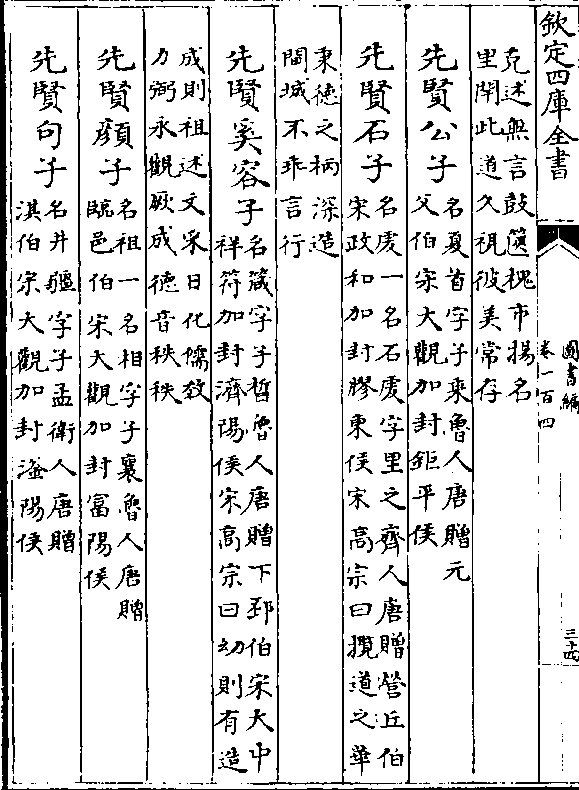 欽定四庫全書
圖書編
卷一百四
三十四
克述無言鼓篋槐市揚名
里閈此道久視彼美常存
先賢公子
名夏首字子乘魯人唐贈元
父伯宋大觀加封鉅平侯
先賢石子
名處一名石處字里之齊人唐贈營丘伯
宋政和加封膠東侯宋高宗曰攬道之華
秉德之柄深造
閫域不乖言行
先賢奚容子
名箴字子晳魯人唐贈下邳伯宋大中
祥符加封濟陽侯宋高宗曰幼則有造
成則祖述文采日化儒效
力弼永觀厥成德音秩秩
先賢顔子
名祖一名相字子襄魯人唐贈
臨邑伯宋大觀加封富陽侯
先賢句子
名井疆字子孟衛人唐贈
淇伯宋大觀加封滏陽侯